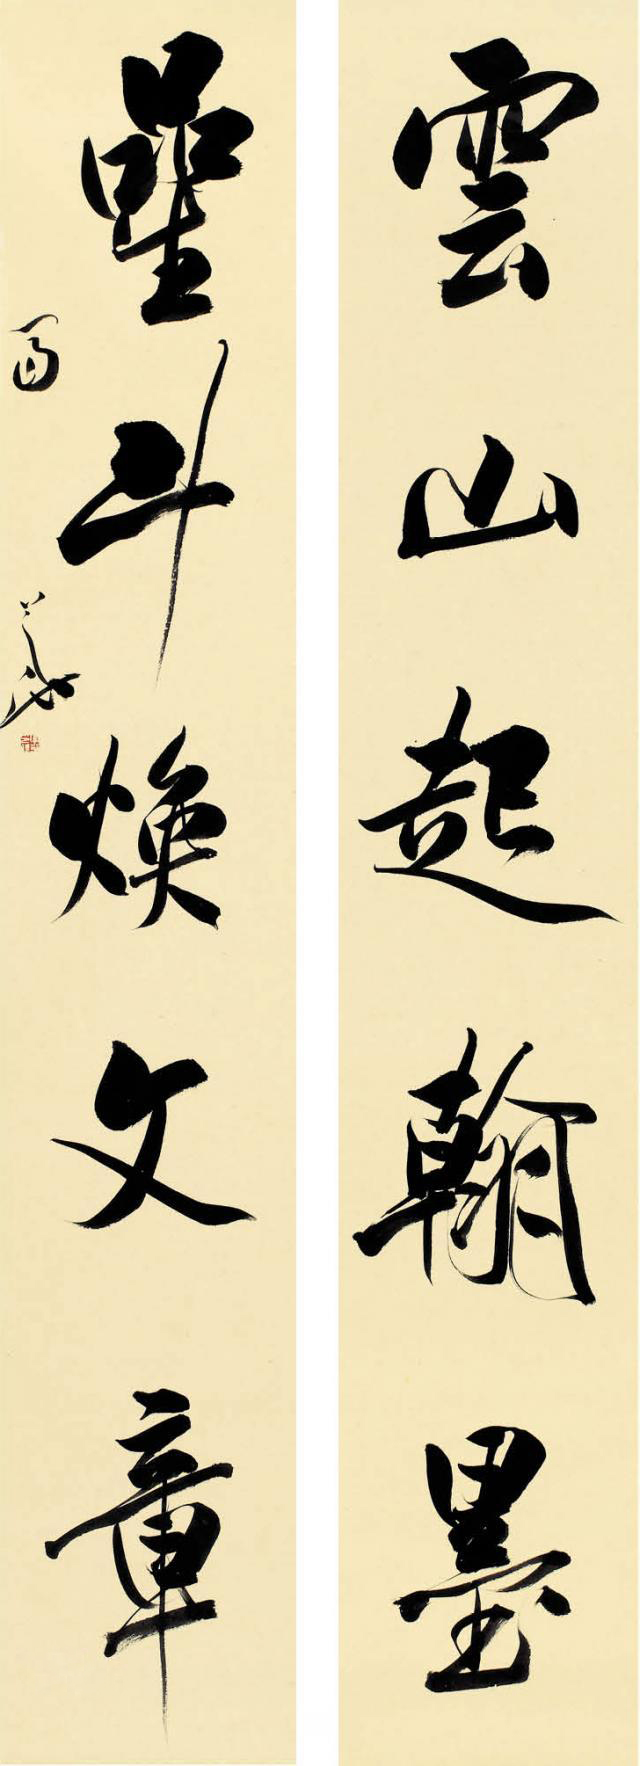 雲山起翰墨
曐斗煥文章